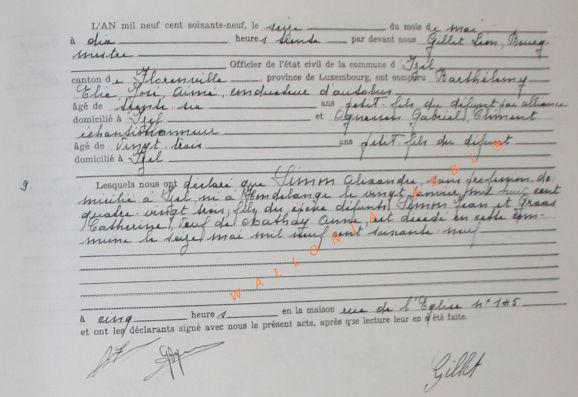 L'AN mil neuf cent soixante-neuf, le seize du mois de mai
à dix heures trente par devant nous Gillet Léon, Bourg
mestre Officier de l'état civil de la commune d'Izel
canton de Florenville, province de Luxembourg, ont comparu Barthélemy
Elie, José, Aimé, conducteur d'autobus
âgé de trente six ans petit-fils du défunt par alliance
domicilié à Izel et Gabriel, Clément
échantillonneur
âgé de vingt trois ans petit fils du défunt
domicilié à Izel
9. Lesquels nous ont déclaré que Simon Alexandre, sans profession, do
micilié à Izel, né à Hondelange le vingt janvier mil huit cent
quatre-vingt trois, fils des époux défunts Simon Jean et Graas
Catherine, veuf de Anne, est décédé en cette com-
mune le seize mai mil neuf cent soixante neuf
WALLONIA
à cinq heures en la maison rue de l'Eglise n° 145
et ont les déclarants signé avec nous le présent acte, après que lecture leur en a été faite.
Gillet